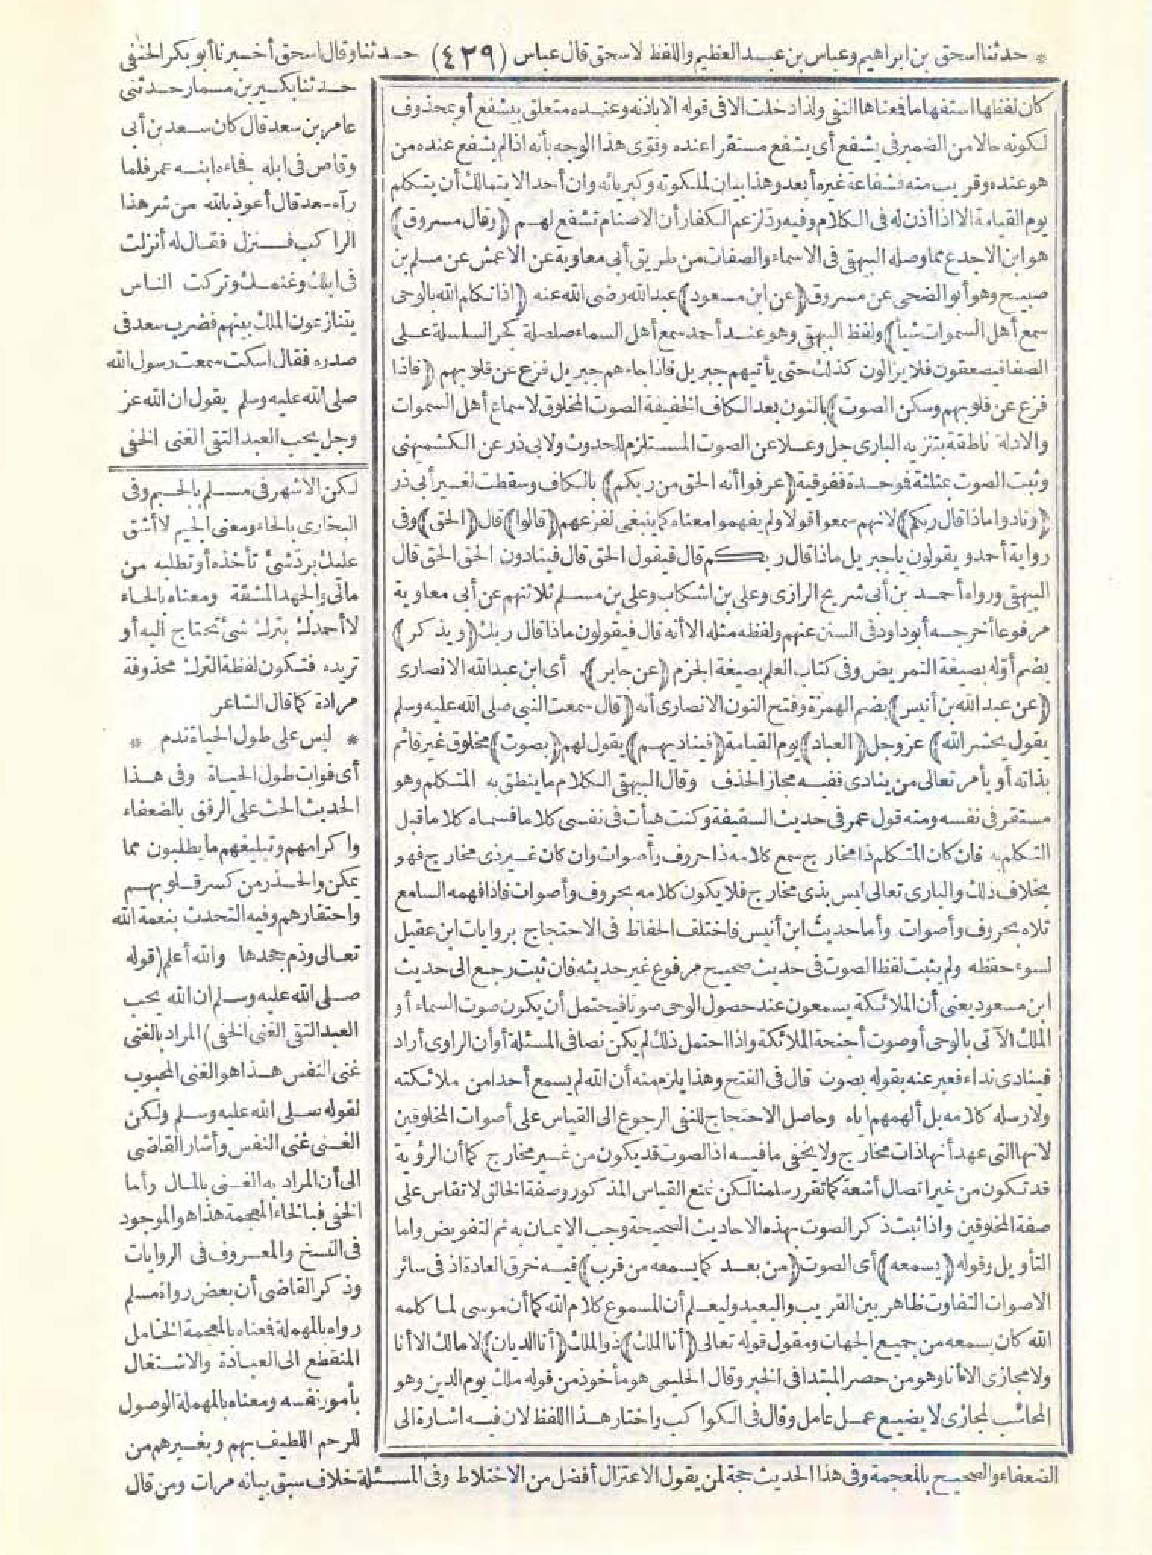 * حدثنا اسحق بن ابراهيم وعباس بن عبد العظيم واللفظ لاسحق قال عباس (٤٣٩) حدثنا وقال اسحق أخبرنا أبو بكر الحنفى
كان لفظها استفهاما فمعناها النفى ولذا دخلت الا فى قوله الا باذنه وعنده متعلق بيشفع أو بمحذوف
لكونه حالا من الضمير فى يشفع أى يشفع مستقرا عنده وقوى هذا الوجه بأنه اذا لم يشفع عنده من
هو عنده وقريب منه فشفاعة غيره أبعد وهذا بيان لملكوته وكبريائه وان أحدا لا يتمالك أن يتكلم
يوم القيامة الا اذا أذن له فى الكلام وفيه رد لزعم الكفار أن الاصنام تشفع لهم ﴿(وقال مسروق)﴾
هو ابن الاجدع مما وصله البيهقى فى الاسماء والصفات من طريق أبى معاوية عن الاعمش عن مسلم بن
صبيح وهو أبو الضحى عن مسروق (عن ابن مسعود) عبد الله رضى الله عنه (اذا تكلم الله بالوحى
سمع أهل السموات شيأ) ولفظ البيهقى وهو عند أحمد سمع أهل السماء صلصلة كجر السلسلة على
الصفا فيصعقون فلا يزالون كذلك حتى يأتيهم جبريل فاذا جاءهم جبريل فزع عن قلوبهم (فاذا
فزع عن قلوبهم وسكن الصوت) بالنون بعد الكاف الخفيفة الصوت المخلوق لاسماع أهل السموات
والادلة ناطقة بتنزيه البارى جل وعلا عن الصوت المستلزم للحدوث ولابى ذر عن الكشميهنى
وثبت الصوت بمثلثة فموحدة ففوقية (عرفوا أنه الحق من ربكم) بالكاف وسقطت لغير أبى ذر
(ونادوا ماذا قال ربكم) لانهم سمعوا قولا ولم يفهموا معناه كما ينبغى لفزعهم (قالوا) قال (الحق) وفى
رواية أحمد ويقولون يا جبريل ماذا قال ربكم قال فيقول الحق قال فينادون الحق الحق قال
البيهقى ورواه أحمد بن أبى شريح الرازى وعلى بن اشكاب وعلى بن مسلم ثلاثتهم عن أبى معاوية
مرفوعا أخرجه أبو داود فى السنن عنهم ولفظه مثله الا أنه قال فيقولون ماذا قال ربك (ويذكر)
بضم أوله بصيغة التمريض وفى كتاب العلم بصيغة الجزم (عن جابر) أى ابن عبد الله الانصارى
(عن عبد الله بن أنيس) بضم الهمزة وفتح النون الانصارى أنه (قال سمعت النبى صلى الله عليه وسلم
يقول يحشر الله) عز وجل (العباد) يوم القيامة (فيناديهم) يقول لهم (بصوت) مخلوق غير قائم
بذاته أو يأمر تعالى من ينادى ففيه مجاز الحذف وقال البيهقى الكلام ما ينطق به المتكلم وهو
مستقر فى نفسه ومنه قول عمر فى حديث السقيفة وكنت هيأت فى نفسى كلاما فسماه كلاما قبل
التكلم به فان كان المتكلم ذا مخارج سمع كلامه ذا حروف وأصوات وان كان غير ذى مخارج فهو
بخلاف ذلك والبارى تعالى ليس بذى مخارج فلا يكون كلامه بحروف وأصوات فاذا فهمه السامع
تلاه بحروف وأصوات وأما حديث ابن أنيس فاختلف الحفاظ فى الاحتجاج بروايات ابن عقيل
لسوء حفظه ولم يثبت لفظ الصوت فى حديث صحيح مرفوع غير حديثه فان ثبت رجع الى حديث
ابن مسعود يعنى أن الملائكة يسمعون عند حصول الوحى صوتا فيحتمل أن يكون صوت السماء أو
الملك الآتى بالوحى أو صوت أجنحة الملائكة واذا احتمل ذلك لم يكن نصا فى المسئلة أو أن الراوى أراد
فينادى نداء فعبر عنه بقوله بصوت قال فى الفتح وهذا يلزم منه أن الله لم يسمع أحدا من ملائكته
ولا رسله كلامه بل ألهمهم اياه وحاصل الاحتجاج للنفى الرجوع الى القياس على أصوات المخلوقين
لانها التى عهد أنها ذات مخارج ولا يخفى ما فيه اذ الصوت قد يكون من غير مخارج كما أن الرؤية
قد تكون من غير اتصال أشعة كما تقرر سلمنا لكن نمنع القياس المذكور وصفة الخالق لا تقاس على
صفة المخلوقين واذا ثبت ذكر الصوت بهذه الاحاديث الصحيحة وجب الايمان به ثم التفويض واما
التأويل وقوله (يسمعه) أى الصوت (من بعد كما يسمعه من قرب) فيه خرق العادة اذ فى سائر
الاصوات التفاوت ظاهر بين القريب والبعيد وليعلم أن المسموع كلام الله كما أن موسى لما كلمه
الله كان يسمعه من جميع الجهات ومقول قوله تعالى (أنا الملك) ذو الملك (أنا الديان) لا مالك الا أنا
ولا مجازى الا أنا وهو من حصر المبتدا فى الخبر وقال الحليمى هو مأخوذ من قوله ملك يوم الدين وهو
المحاسب المجازى لا يضيع عمل عامل وقال فى الكواكب واختار هذا اللفظ لان فيه اشارة الى
حدثنا بكير بن مسمار حدثنى
عامر بن سعد قال كان سعد بن أبى
وقاص فى ابله فجاءه ابنه عمر فلما
رآه سعد قال أعوذ بالله من شر هذا
الراكب فنزل فقال له أنزلت
فى ابلك وغنمك وتركت الناس
يتنازعون الملك بينهم فضرب سعد فى
صدره فقال اسكت سمعت رسول الله
صلى الله عليه وسلم يقول ان الله عز
وجل يحب العبد التقى الغنى الخفى
لكن الاشهر فى مسلم بالجيم وفى
البخارى بالحاء ومعنى الجيم لا أشق
عليك برد شئ تأخذه أو تطلبه من
مالى والجهد المشقة ومعناه بالحاء
لا أحمدك بترك شئ تحتاج اليه أو
تريده فتكون لفظة الترك محذوفة
مرادة كما قال الشاعر
* ليس على طول الحياة ندم *
أى فوات طول الحياة وفى هذا
الحديث الحث على الرفق بالضعفاء
واكرامهم وتبليغهم ما يطلبون مما
يمكن والحذر من كسر قلوبهم
واحتقارهم وفيه التحدث بنعمة الله
تعالى وذم جحدها والله أعلم (قوله
صلى الله عليه وسلم ان الله يحب
العبد التقى الغنى الخفى) المراد بالغنى
غنى النفس هذا هو الغنى المحبوب
لقوله صلى الله عليه وسلم ولكن
الغنى غنى النفس وأشار القاضى
الى أن المراد به الغنى بالمال وأما
الخفى فبالخاء المعجمة هذا هو الموجود
فى النسخ والمعروف فى الروايات
وذكر القاضى أن بعض رواة مسلم
رواه بالمهملة فمعناه بالمعجمة الخامل
المنقطع الى العبادة والاشتغال
بأمور نفسه ومعناه بالمهملة الوصول
للرحم اللطيف بهم وبغيرهم من
الضعفاء والصحيح بالمعجمة وفى هذا الحديث حجة لمن يقول الاعتزال أفضل من الاختلاط وفى المسئلة خلاف سبق بيانه مرات ومن قال